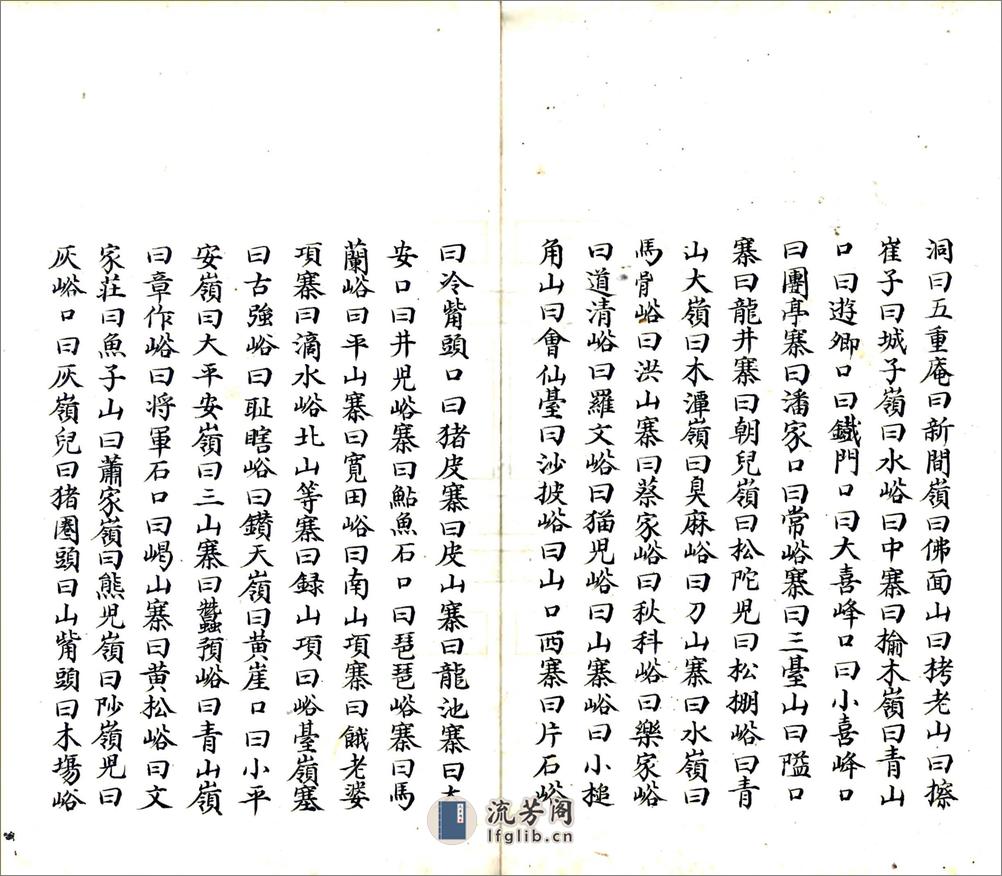 洞曰五重庵曰新間嶺曰佛面山曰栲老山曰擦
崖子曰城子嶺曰水峪曰中寨曰榆木嶺曰青山
口曰遊鄉口曰鐵門口曰大喜峰口曰小喜峰口
曰團亭寨曰潘家口曰常峪寨曰三臺山曰隘口
寨曰龍井寨曰朝兒嶺曰松陀児曰松棚峪曰青
山大嶺曰木潭嶺曰臭麻峪曰刀山寨曰水嶺曰
馬骨峪曰洪山寨曰蔡家峪曰秋科峪曰樂家峪
曰道清峪曰羅文峪曰猫児峪曰山寨峪曰小槌
角山曰會仙臺曰沙披峪曰山口西寨曰片石峪
曰冷觜頭口曰猪皮寨曰皮山寨曰龍池寨曰大
安口曰井児峪寨曰鮎魚石口曰琵琶峪寨曰馬
蘭峪曰平山寨曰寬田峪曰南山項寨曰餓老婆
項寨曰滴水峪北山等寨曰録山項曰峪臺嶺寨
曰古強峪曰耻瞎峪曰鑽天嶺曰黄崖口曰小平
安嶺曰大平安嶺曰三山寨曰蠶預峪曰青山嶺
曰章作峪曰将軍石口曰峴山寨曰黄松峪曰文
家莊曰魚子山曰蕭家嶺曰熊児嶺曰𨸝嶺児曰
灰峪口曰灰嶺兒曰猪圏頭曰山觜頭曰木塲峪
流芳阁
lfglib.cn